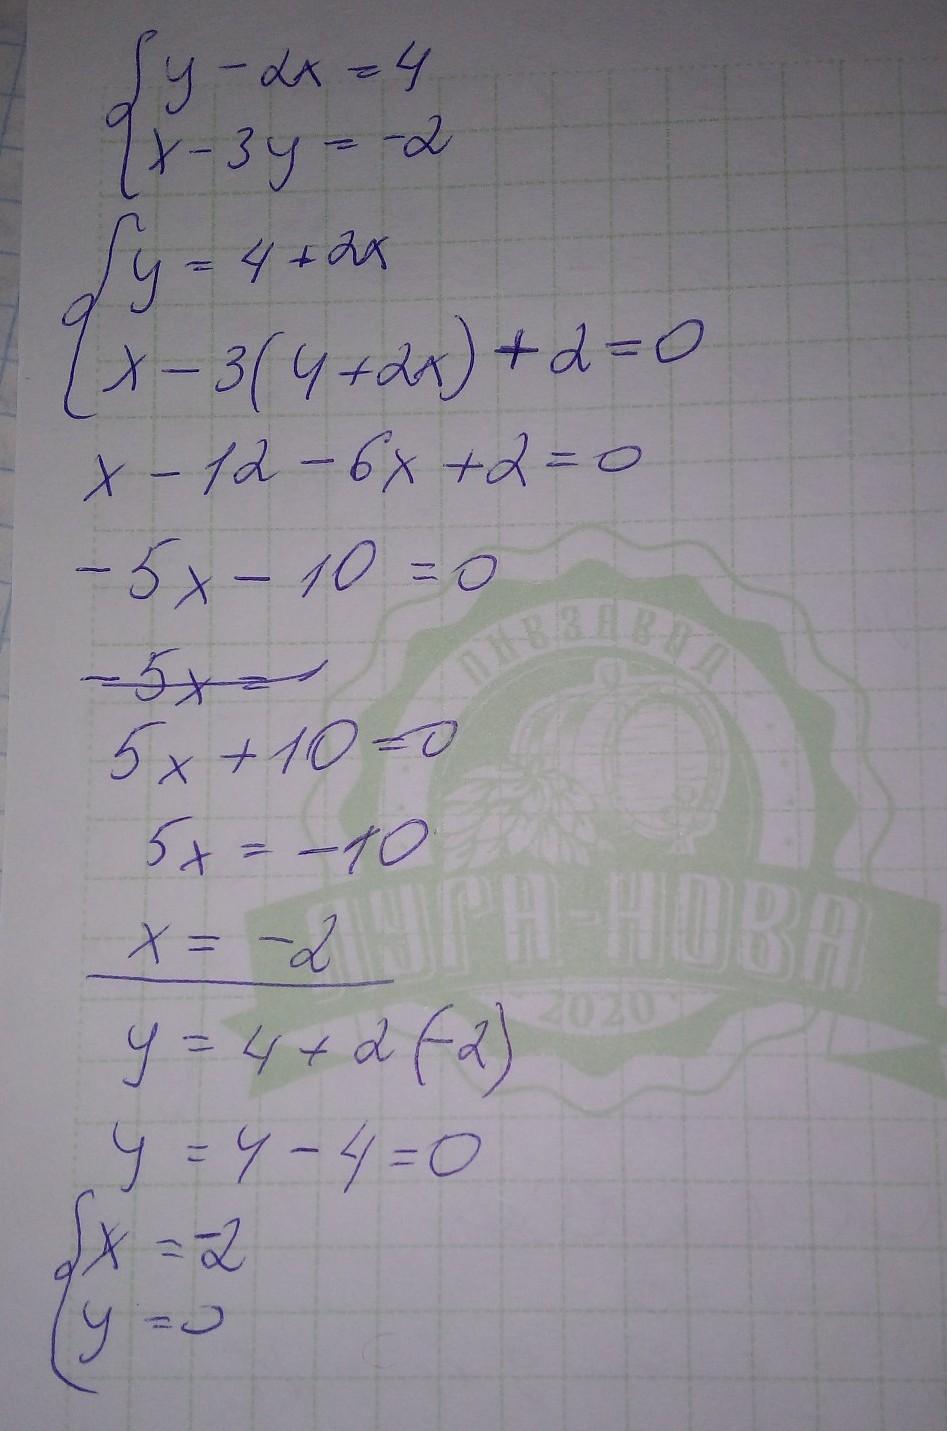 y - 2x = 4
x - 3y = -2
y = 4 + 2x
x - 3(4 + 2x) + 2 = 0
x - 12 - 6x + 2 = 0
-5x - 10 = 0
-5x =
5x + 10 = 0
5x = -10
x = -2
y = 4 + 2(-2)
y = 4 - 4 = 0
x = -2
y = 0
ПИВЗАВОД
ЛУГА-НОВА
2020